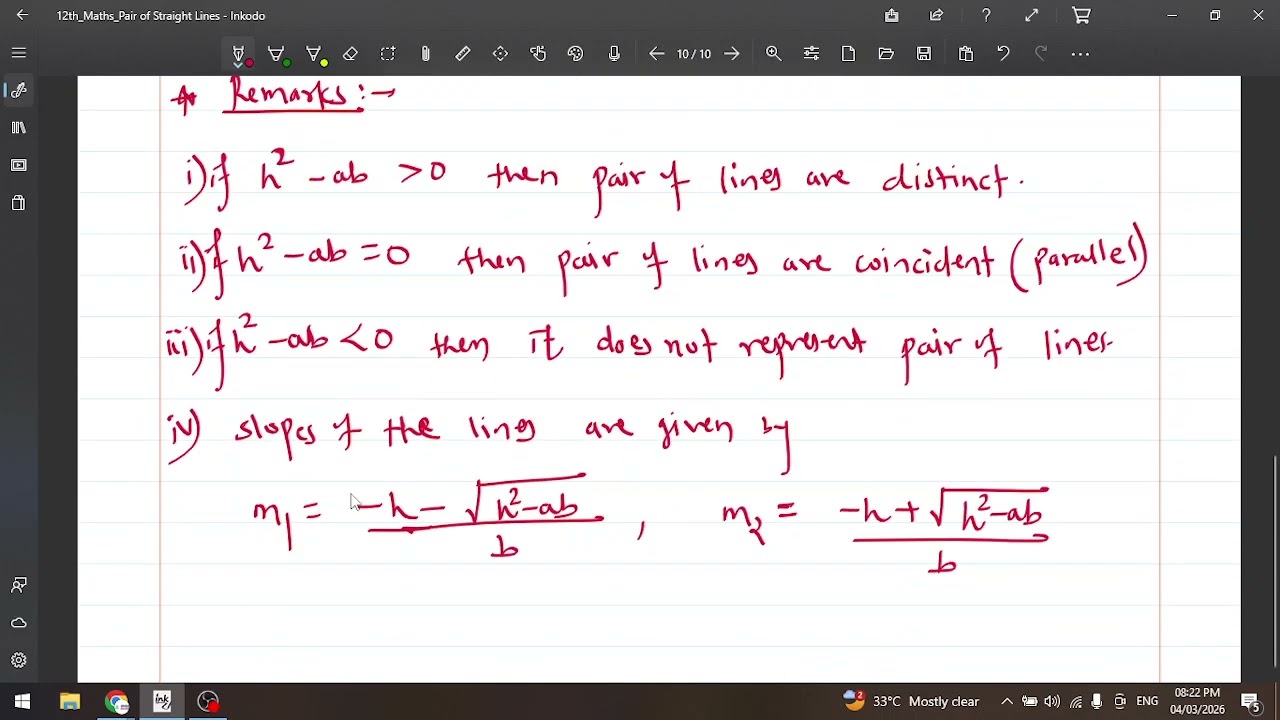 12th_Maths_Pair of Straight Lines - Inkodo
10/10
Remarks:-
i) if h² - ab > 0 then pair of lines are distinct.
ii) if h² - ab = 0 then pair of lines are coincident (parallel)
iii) if h² - ab < 0 then it does not represent pair of lines.
iv) slopes of the lines are given by
m₁ = (-h - √(h² - ab)) / b , m₂ = (-h + √(h² - ab)) / b
2
33°C Mostly clear
ENG
08:22 PM
04/03/2026
5